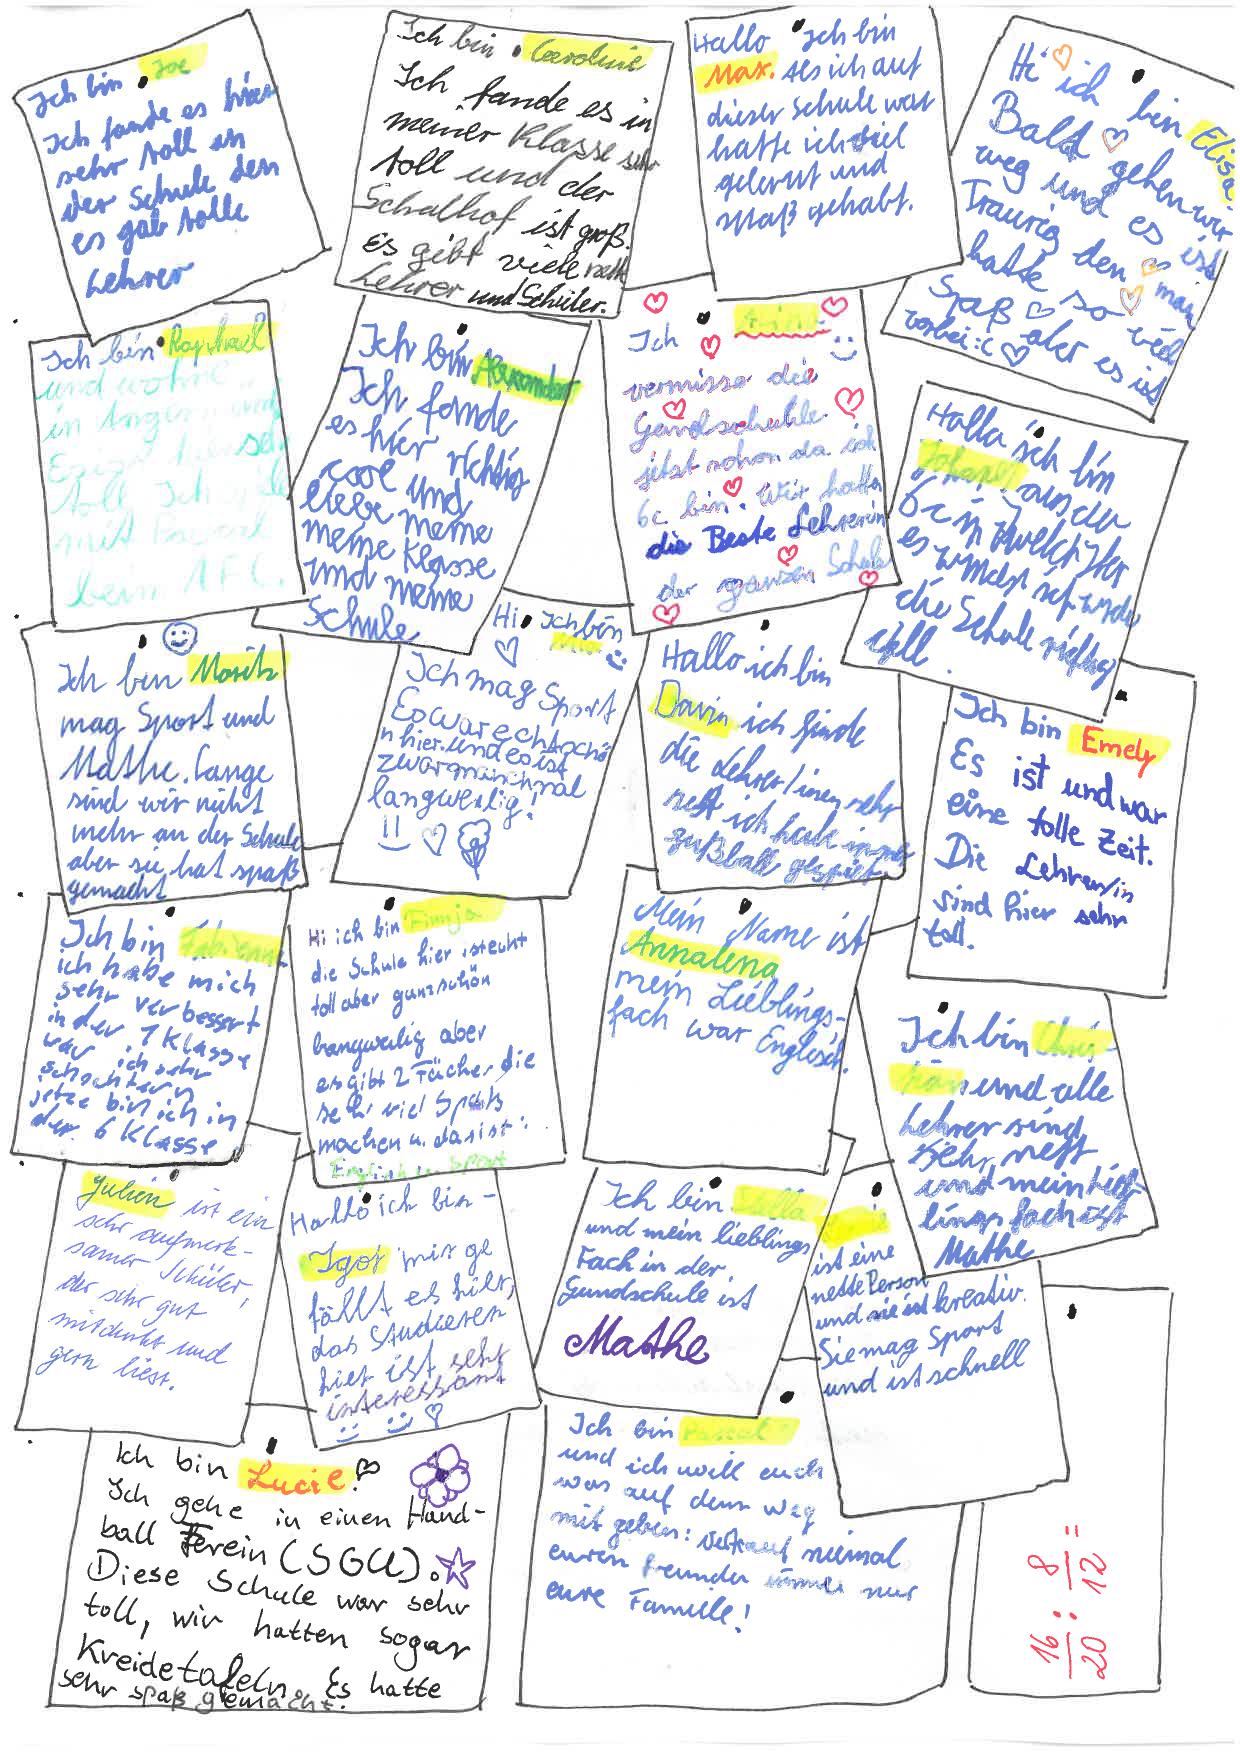 Ich bin Joe
Ich fande es hier
sehr toll an
der Schule den
es gab tolle
Lehrer
Ich bin Caroline
Ich fande es in
meiner Klasse sehr
toll und der
Schalhof ist groß.
Es gibt viele nette
Lehrer und Schüler.
Hallo Ich bin
Max. Als ich auf
dieser Schule war
hatte ich viel
gelernt und
spaß gehabt.
Hi ich bin Elisa.
Bald gehen wir
weg und es ist
Traurig den man
hatte so viel
Spaß aber es ist
vorbei :c
Ich bin Raphael
und wohne
in Angern und
toll Ich
mit
beim AFC.
Ich bin Alexander
Ich fande
es hier richtig
cool und
liebe meine
meine Klasse
und meine
Schule
Ich
vermisse die
Gundschuhle
jetzt schon da ich
6c bin. Wir hatten
die Beste Lehrerin
der ganzen Schule
Hallo ich bin
aus der
6c in
es
die Schule richtig
Ich bin Moritz
mag Sport und
Mathe. Lange
sind wir nicht
mehr an der Schule
aber sie hat spaß
gemacht
Hi, Ich bin
Mia
Ich mag Sport
Es war echt schö
n hier. und es ist
zwar manchmal
langweilig!
Hallo ich bin
Davin ich finde
die Lehrer/inen sehr
nett ich habe immer
fußball gespielt.
Ich bin Emely
Es ist und war
eine tolle Zeit.
Die Lehrer/in
sind hier sehr
toll.
Ich bin
ich habe mich
sehr verbessert
in der 1 Klasse
war ich sehr
schüchtern
jetzt bin ich in
der 6 Klasse
Hi ich bin Finnja
die Schule hier ist echt
toll aber ganz schön
langweilig aber
es gibt 2 Fächer die
sehr viel Spaß
machen u. das ist:
Englisch u. Sport
Mein Name ist
Annalena
mein Lieblings-
fach war Englisch.
Ich bin Chris-
tian und alle
Lehrer sind
sehr nett
und mein lieb-
lings fach ist
Mathe
Julien ist ein
sehr aufmerk-
samer Schüler,
der sehr gut
mitdenkt und
gern liest.
Hallo ich bin
Igor mir ge
fällt es hier,
das Studieren
hier ist sehr
interessant
Ich bin Stella
und mein lieblings
Fach in der
Gundschule ist
Mathe
ist eine
nette Person
und sie ist kreativ.
Sie mag Sport
und ist schnell
Ich bin Lucie.
Ich gehe in einen Hand-
ball Ferein (SGU).
Diese Schule war sehr
toll, wir hatten sogar
Kreidetafeln. Es hatte
sehr spaß gemacht.
Ich bin Pascal
und ich will euch
was auf dem weg
mit geben: vertraut niemal
euren freunden immer nur
eure Famielle!
16/20 : 8/12 =